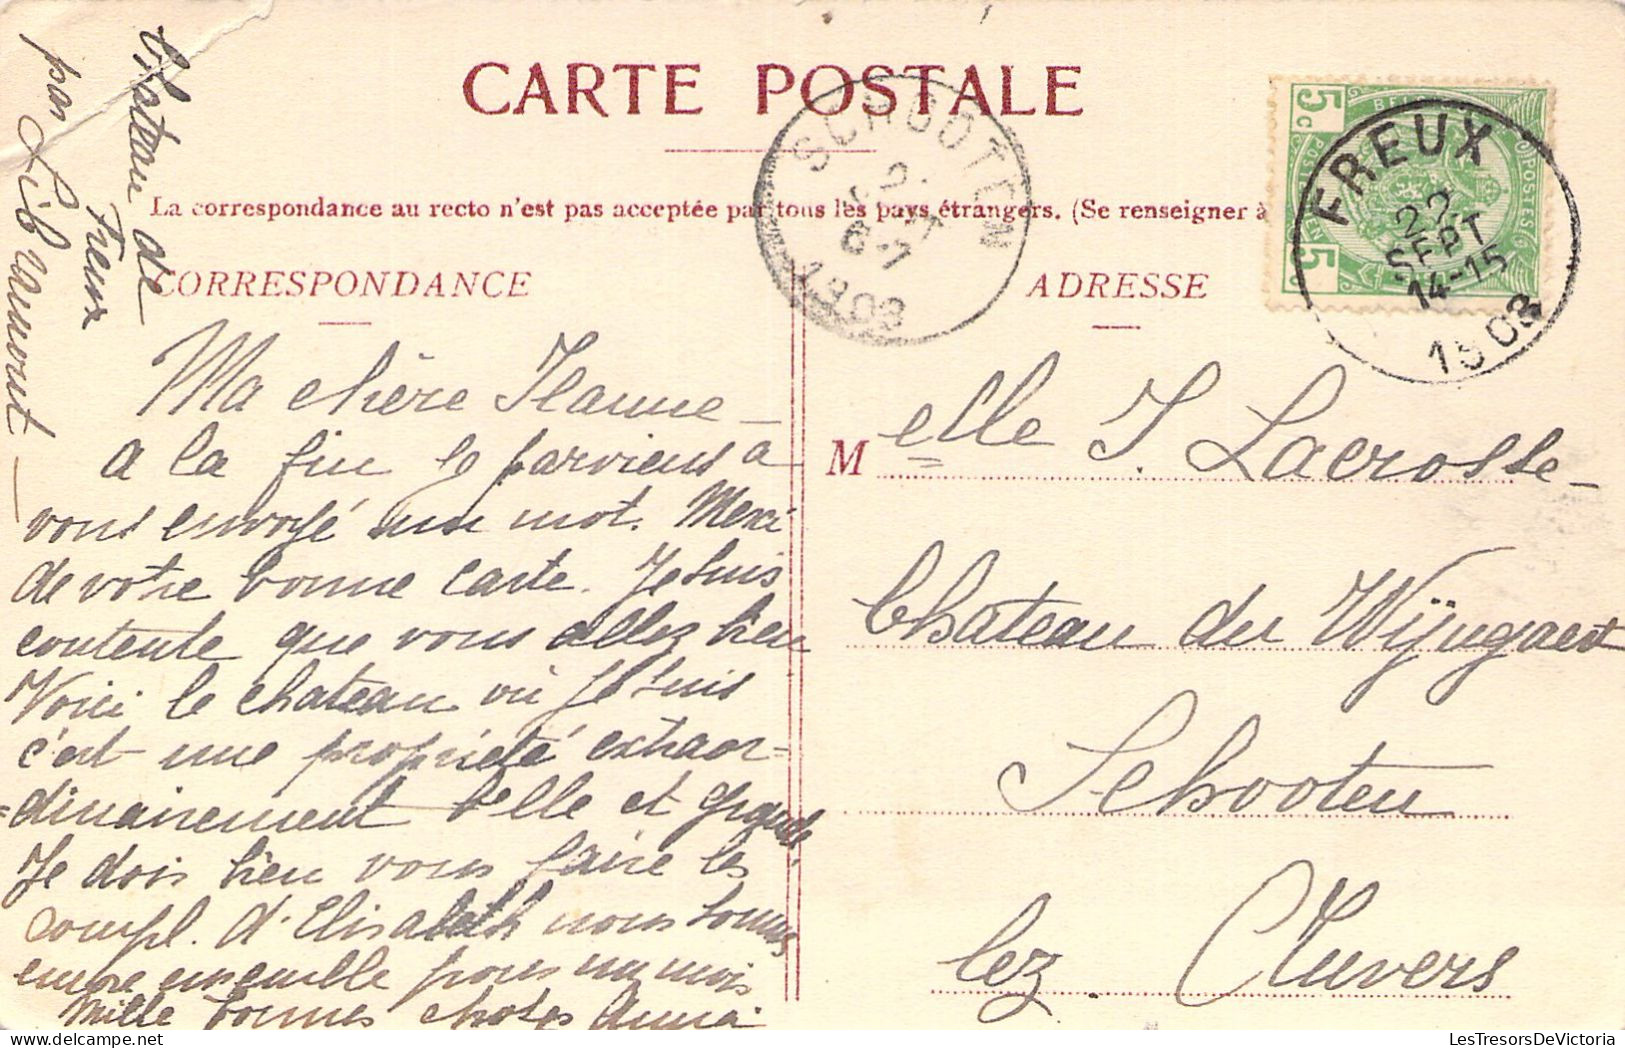 CARTE POSTALE
La correspondance au recto n'est pas acceptée par tous les pays étrangers. (Se renseigner à
CORRESPONDANCE
Château de
Freux
par Libramont
Ma chère Jeanne
a la fin je parviens à
vous envoyé un mot. Merci
de votre bonne carte. Je suis
contente que vous allez bien
Voici le chateau où je suis
c'est une propriété extraor=
=dinairement belle et grande.
Je dois bien vous faire les
compl. d'Elisabeth nous sommes
encore ensemble pour un mois
Mille bonnes choses Anna
ADRESSE
Melle J. Lacrosse
Chateau du Wÿngaert
Schooten
lez Anvers
SCHOOTEN
1903
5c
BELG
POSTES
POSTERIJEN
5
FREUX
22
SEPT
14-15
1903
LesTresorsDeVictoria